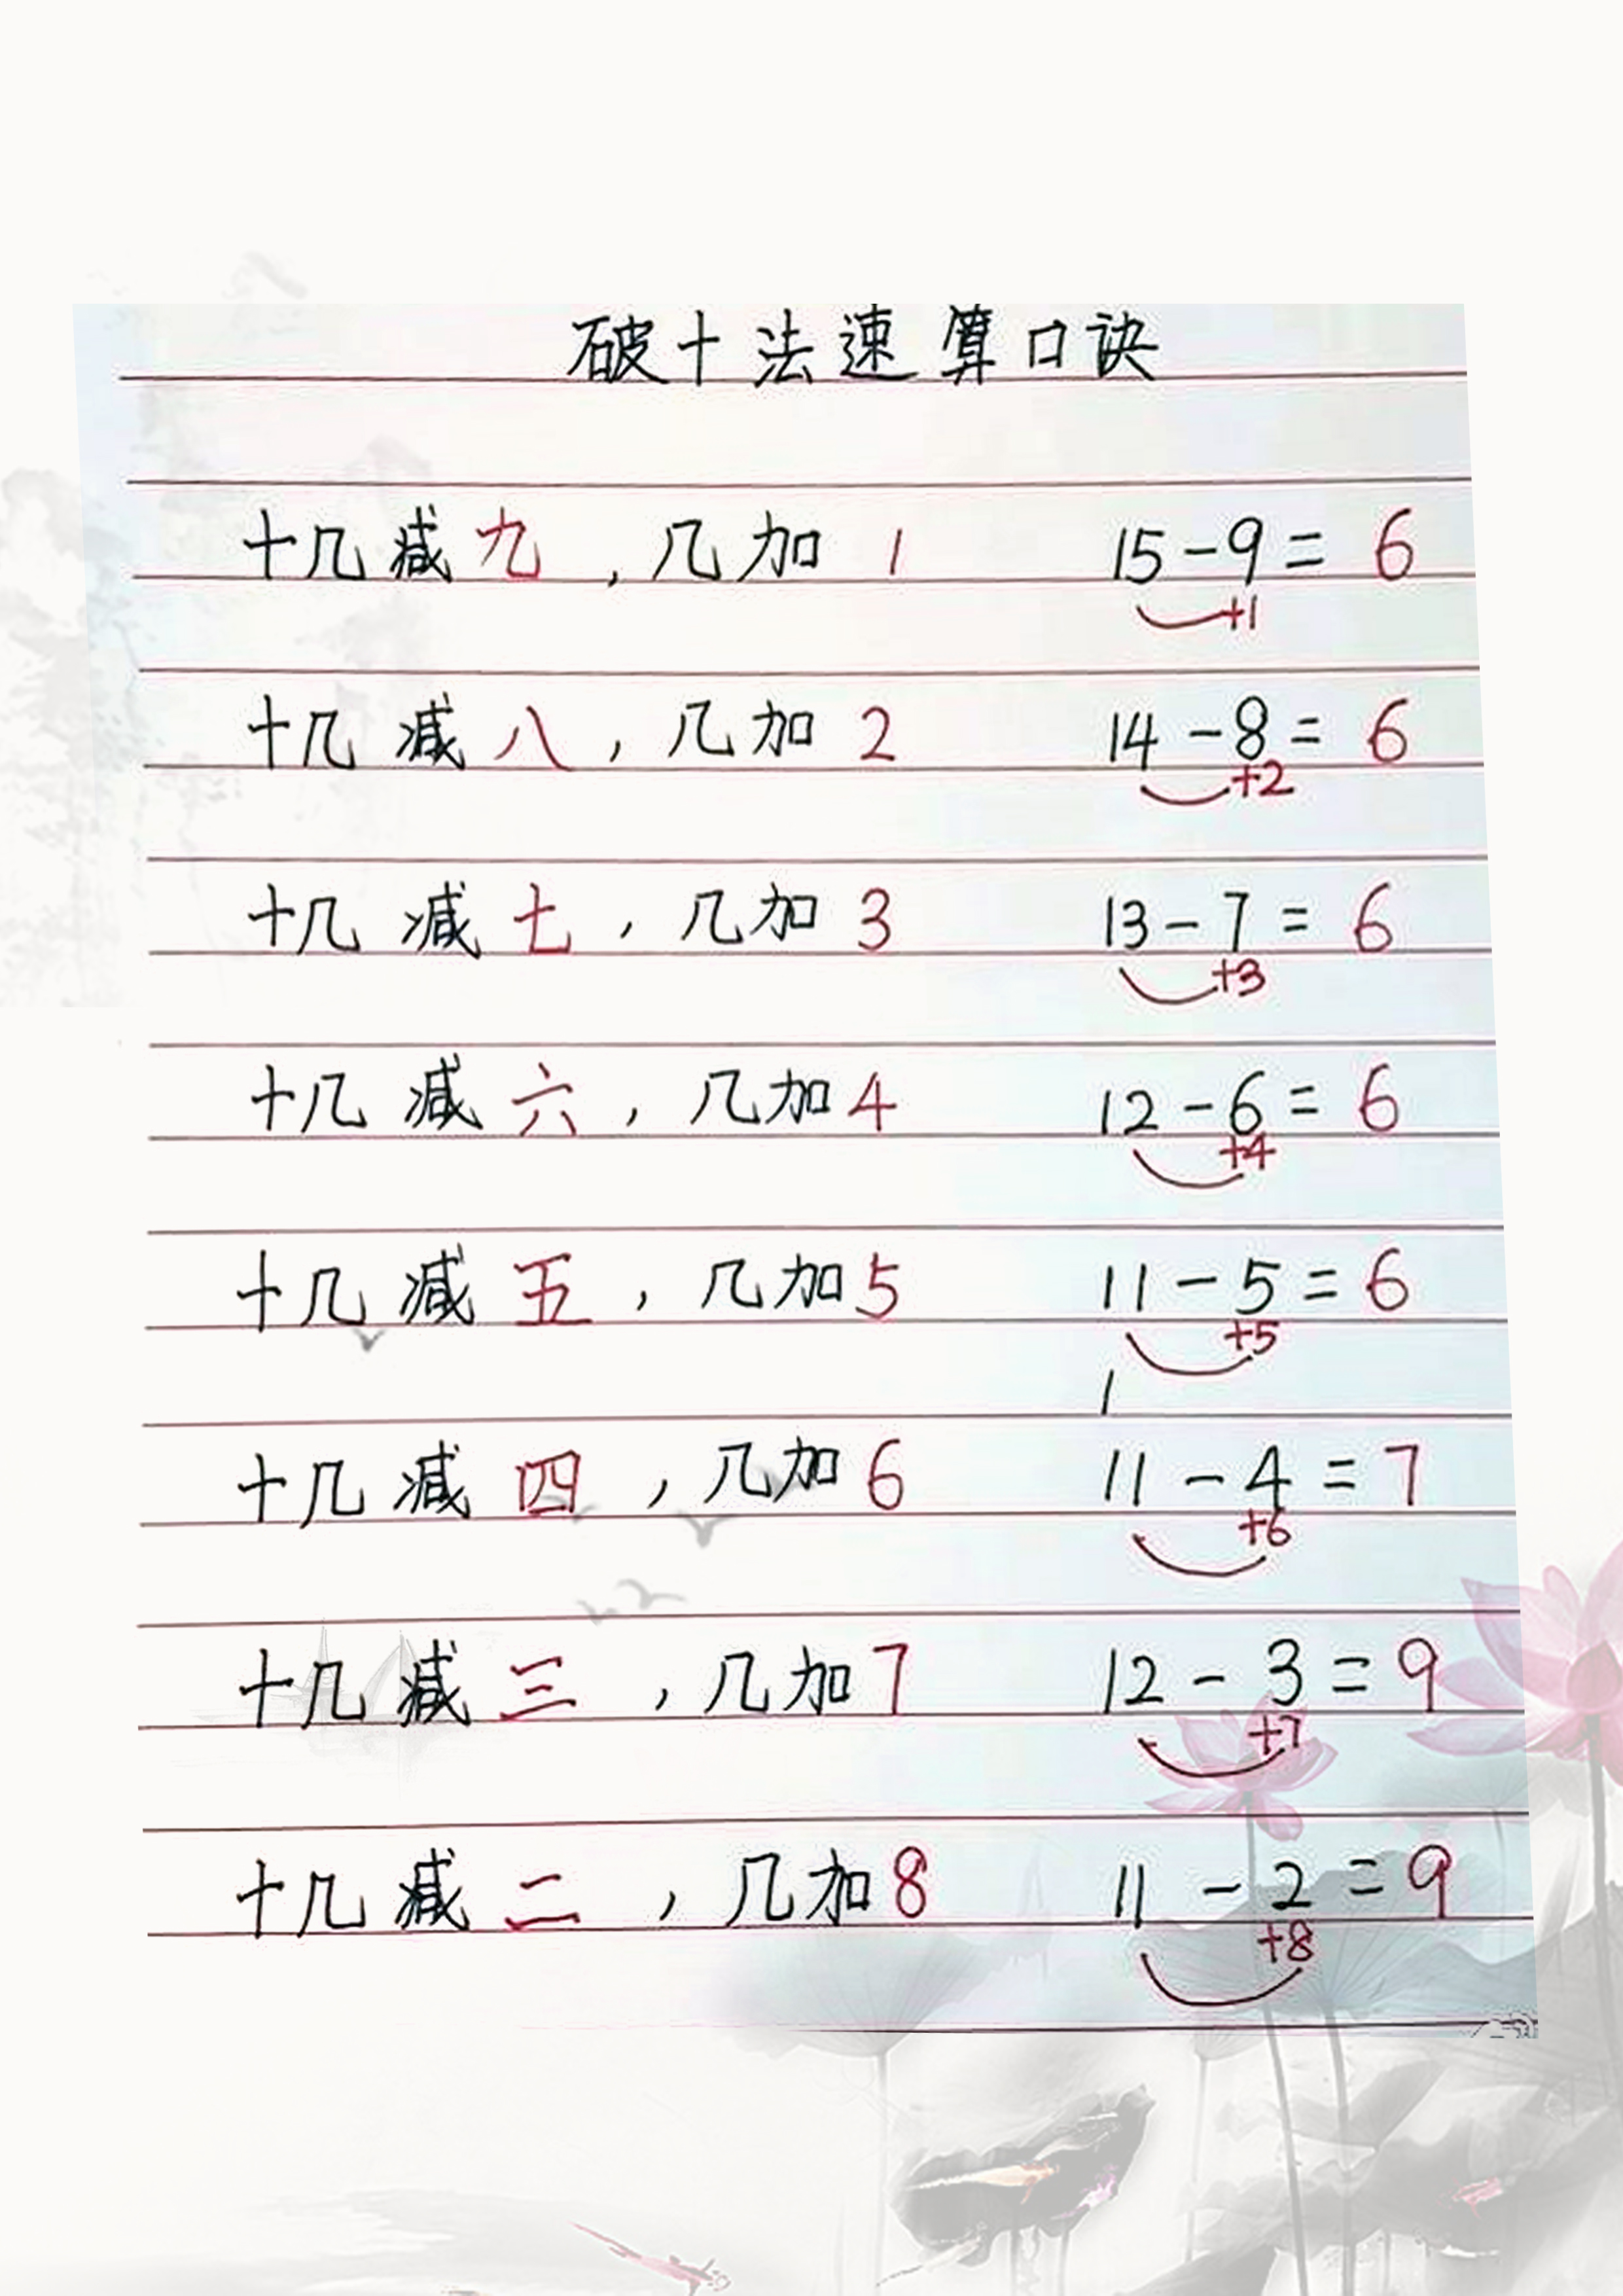 破十法速算口诀
十几减九，几加1 15-9=6
+1
十几减八，几加2 14-8=6
+2
十几减七，几加3 13-7=6
+3
十几减六，几加4 12-6=6
+4
十几减五，几加5 11-5=6
+5
1
十几减四，几加6 11-4=7
+6
十几减三，几加7 12-3=9
+7
十几减二，几加8 11-2=9
+8